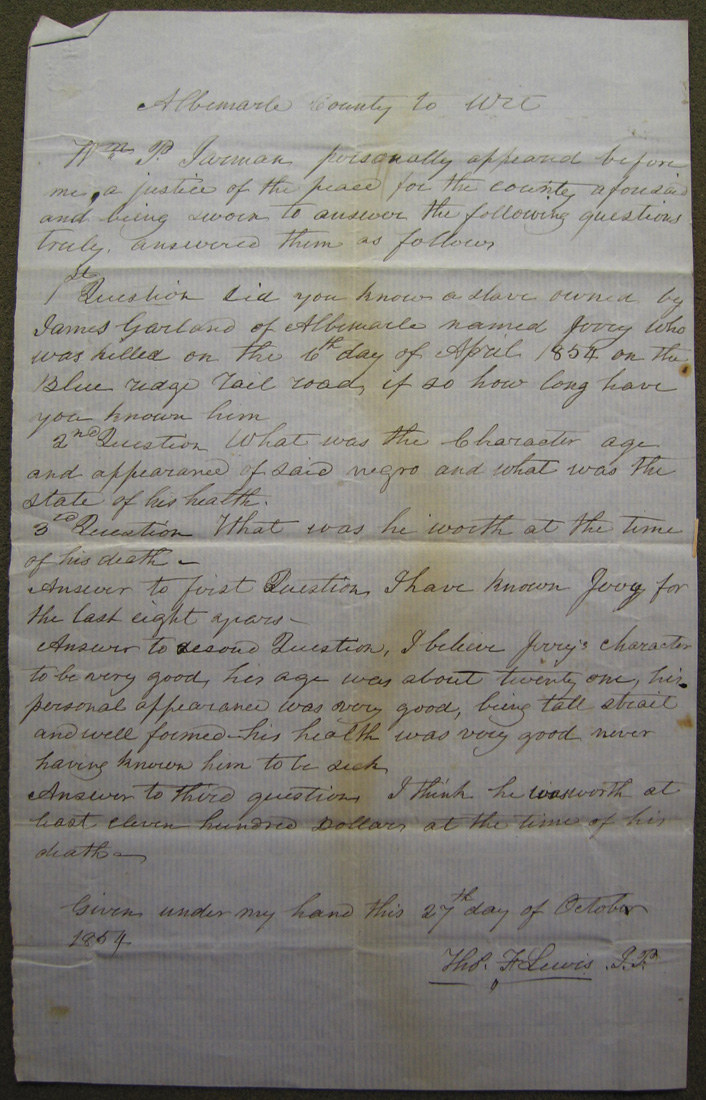 Albemarle County to Wit
Wm P. Jarman personally appeared before
me, a justice of the peace for the county aforesaid
and being sworn to answer the following questions
truly. answered them as follows
1st Question Did you know a slave owned by
James Garland of Albemarle named Jerry who
was killed on the 6th day of April 1854 on the
Blue ridge rail road, if so how long have
you known him
2nd Question What was the Character age
and appearance of said negro and what was the
state of his health.
3rd Question What was he worth at the time
of his death –
Answer to first Question, I have known Jerry for
the last eight years –
Answer to second Question, I believe Jerry's character
to be very good, his age was about twenty one, his
personal appearance was very good, being tall strait
and well formed – his health was very good never
having known him to be sick
Answer to third question, I think he was worth at
least eleven hundred Dollars at the time of his
death –
Given under my hand this 27th day of October
1854
Thos. F Lewis J.P.